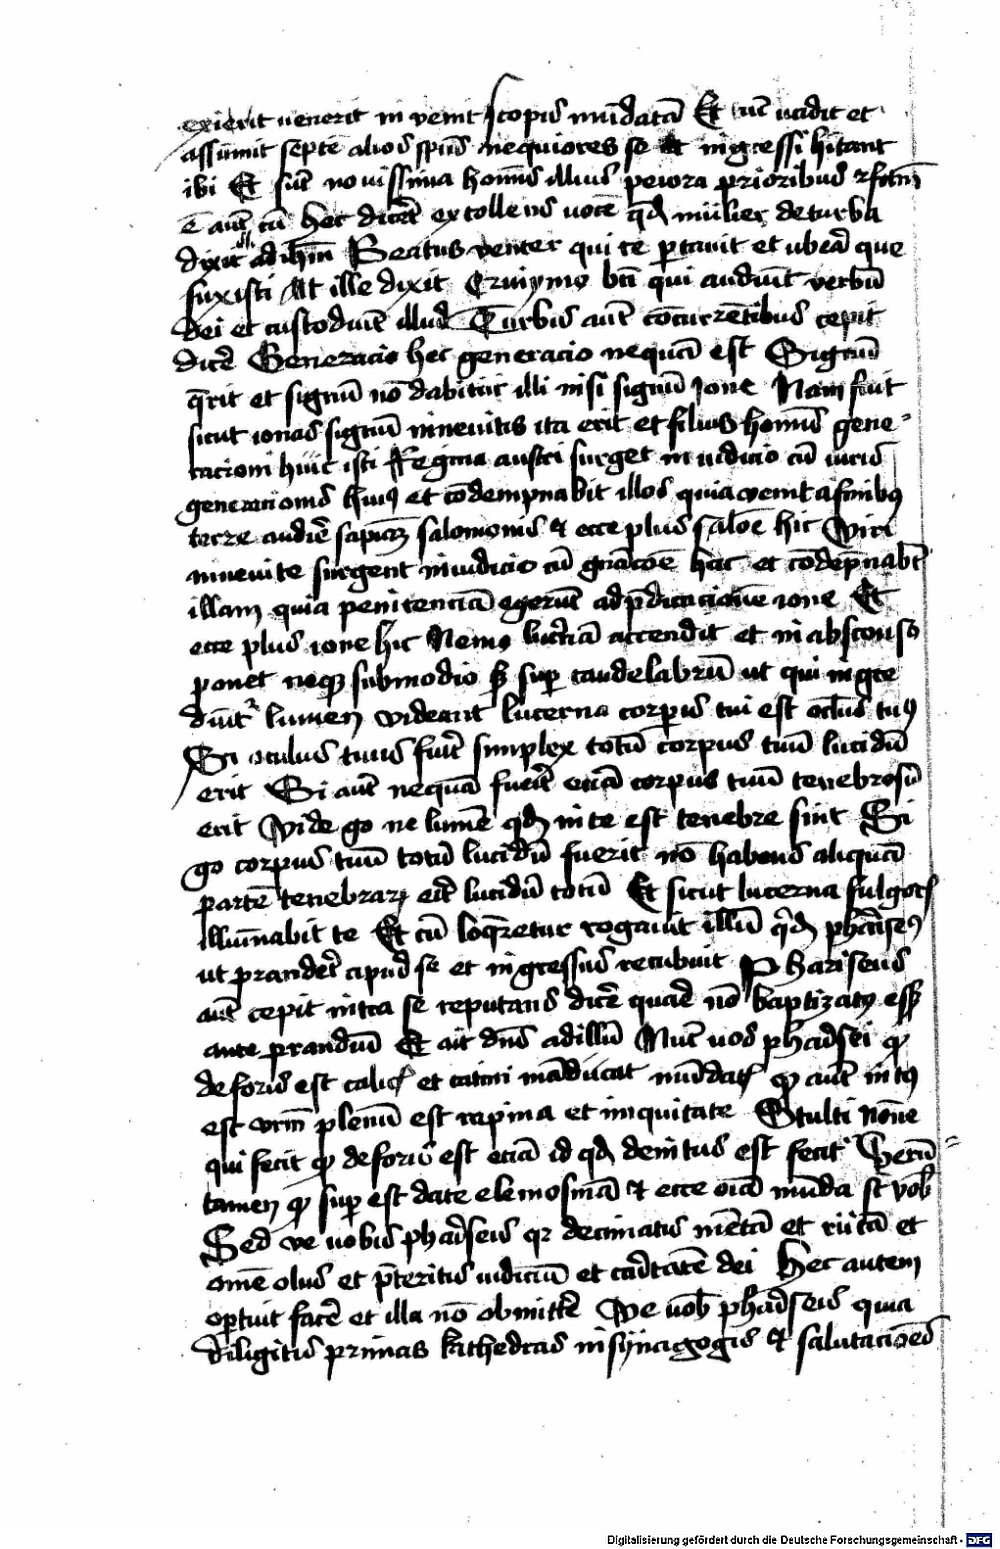 exierit venerit inveint scopis mūdatā Et tūc vadit et
assumit septē alios spūs nequiores se et ingressi hītant
ibi Et sūt novissima hoīnis illius peiora prioribus
ē autē cū hec dicēt extollens vocē qdā mulier de turba
dixit ad ihm Beatus venter qui te portavit et ubera que
suxisti At ille dixit Quiymo bti qui audiūt verbū
dei et custodiūt illud Turbis autē cōcurrētibus cepit
dicē Generacio hec generacio nequā est Signū
qrit et signū nō dabitur illi nisi signū Ione Nam fuit
sicut ionas signū ninevitis ita erit et filius hoīnis gene-
racioni huic isti Regina austri surget in iudicio cū viris
generacionis huiꝰ et cōdempnabit illos quia venit a finibꝰ
terre audiē sapiam salomonis et ecce plus salōe hic Viri
ninevite surgent in iudicio cū gnācōe hac et cōdēpnabt
illam quia penitenciā egerūt ad pdicacionē ione Et
ecce plus ione hic Nemo lucernā accendit et in absconso
ponet neqꝫ sub modio sꝫ sup candelabrū ut qui ingre
diūtur lumen videant Lucerna corpis tui est oclus tuꝰ
Si oculus tuus fuit simplex totū corpus tuū lucidū
erit Si autē nequā fuerit eciā corpus tuū tenebrosū
erit Vide go ne lumē qd in te est tenebre sint Si
go corpus tuū totū lucidū fuerit nō habens aliquā
partē tenebraꝝ erit lucidū totū Et sicut lucerna fulgoris
illumnabit te Et cū loqretur rogavit illū qdā phariseꝰ
ut pranderet apud se et ingressus recubuit Phariseus
autē cepit intra se reputans dicē quare nō baptizatꝰ esset
ante prandiū Et ait dns ad illū Nūc vos pharisei qd
deforis est calicis et catini mādūcat mūdatis qd autē intꝰ
est vrm plenū est rapina et iniquitate Stulti nōne
qui fecit qd deforis est eciā id qd deintus est fecit Verū
tamen qd sup est date elemosinā et ecce oīa mūda st vob
Sed ve vobis phariseis qꝛ decimatis mētā et rutā et
omē olus et pteritis iudiciū et caritatē dei Hec autem
optuit facē et illa nō obmittē Ve vob phariseis quia
diligitis primas kathedras in synagogis et salutacioēs
Digitalisierung gefördert durch die Deutsche Forschungsgemeinschaft - DFG